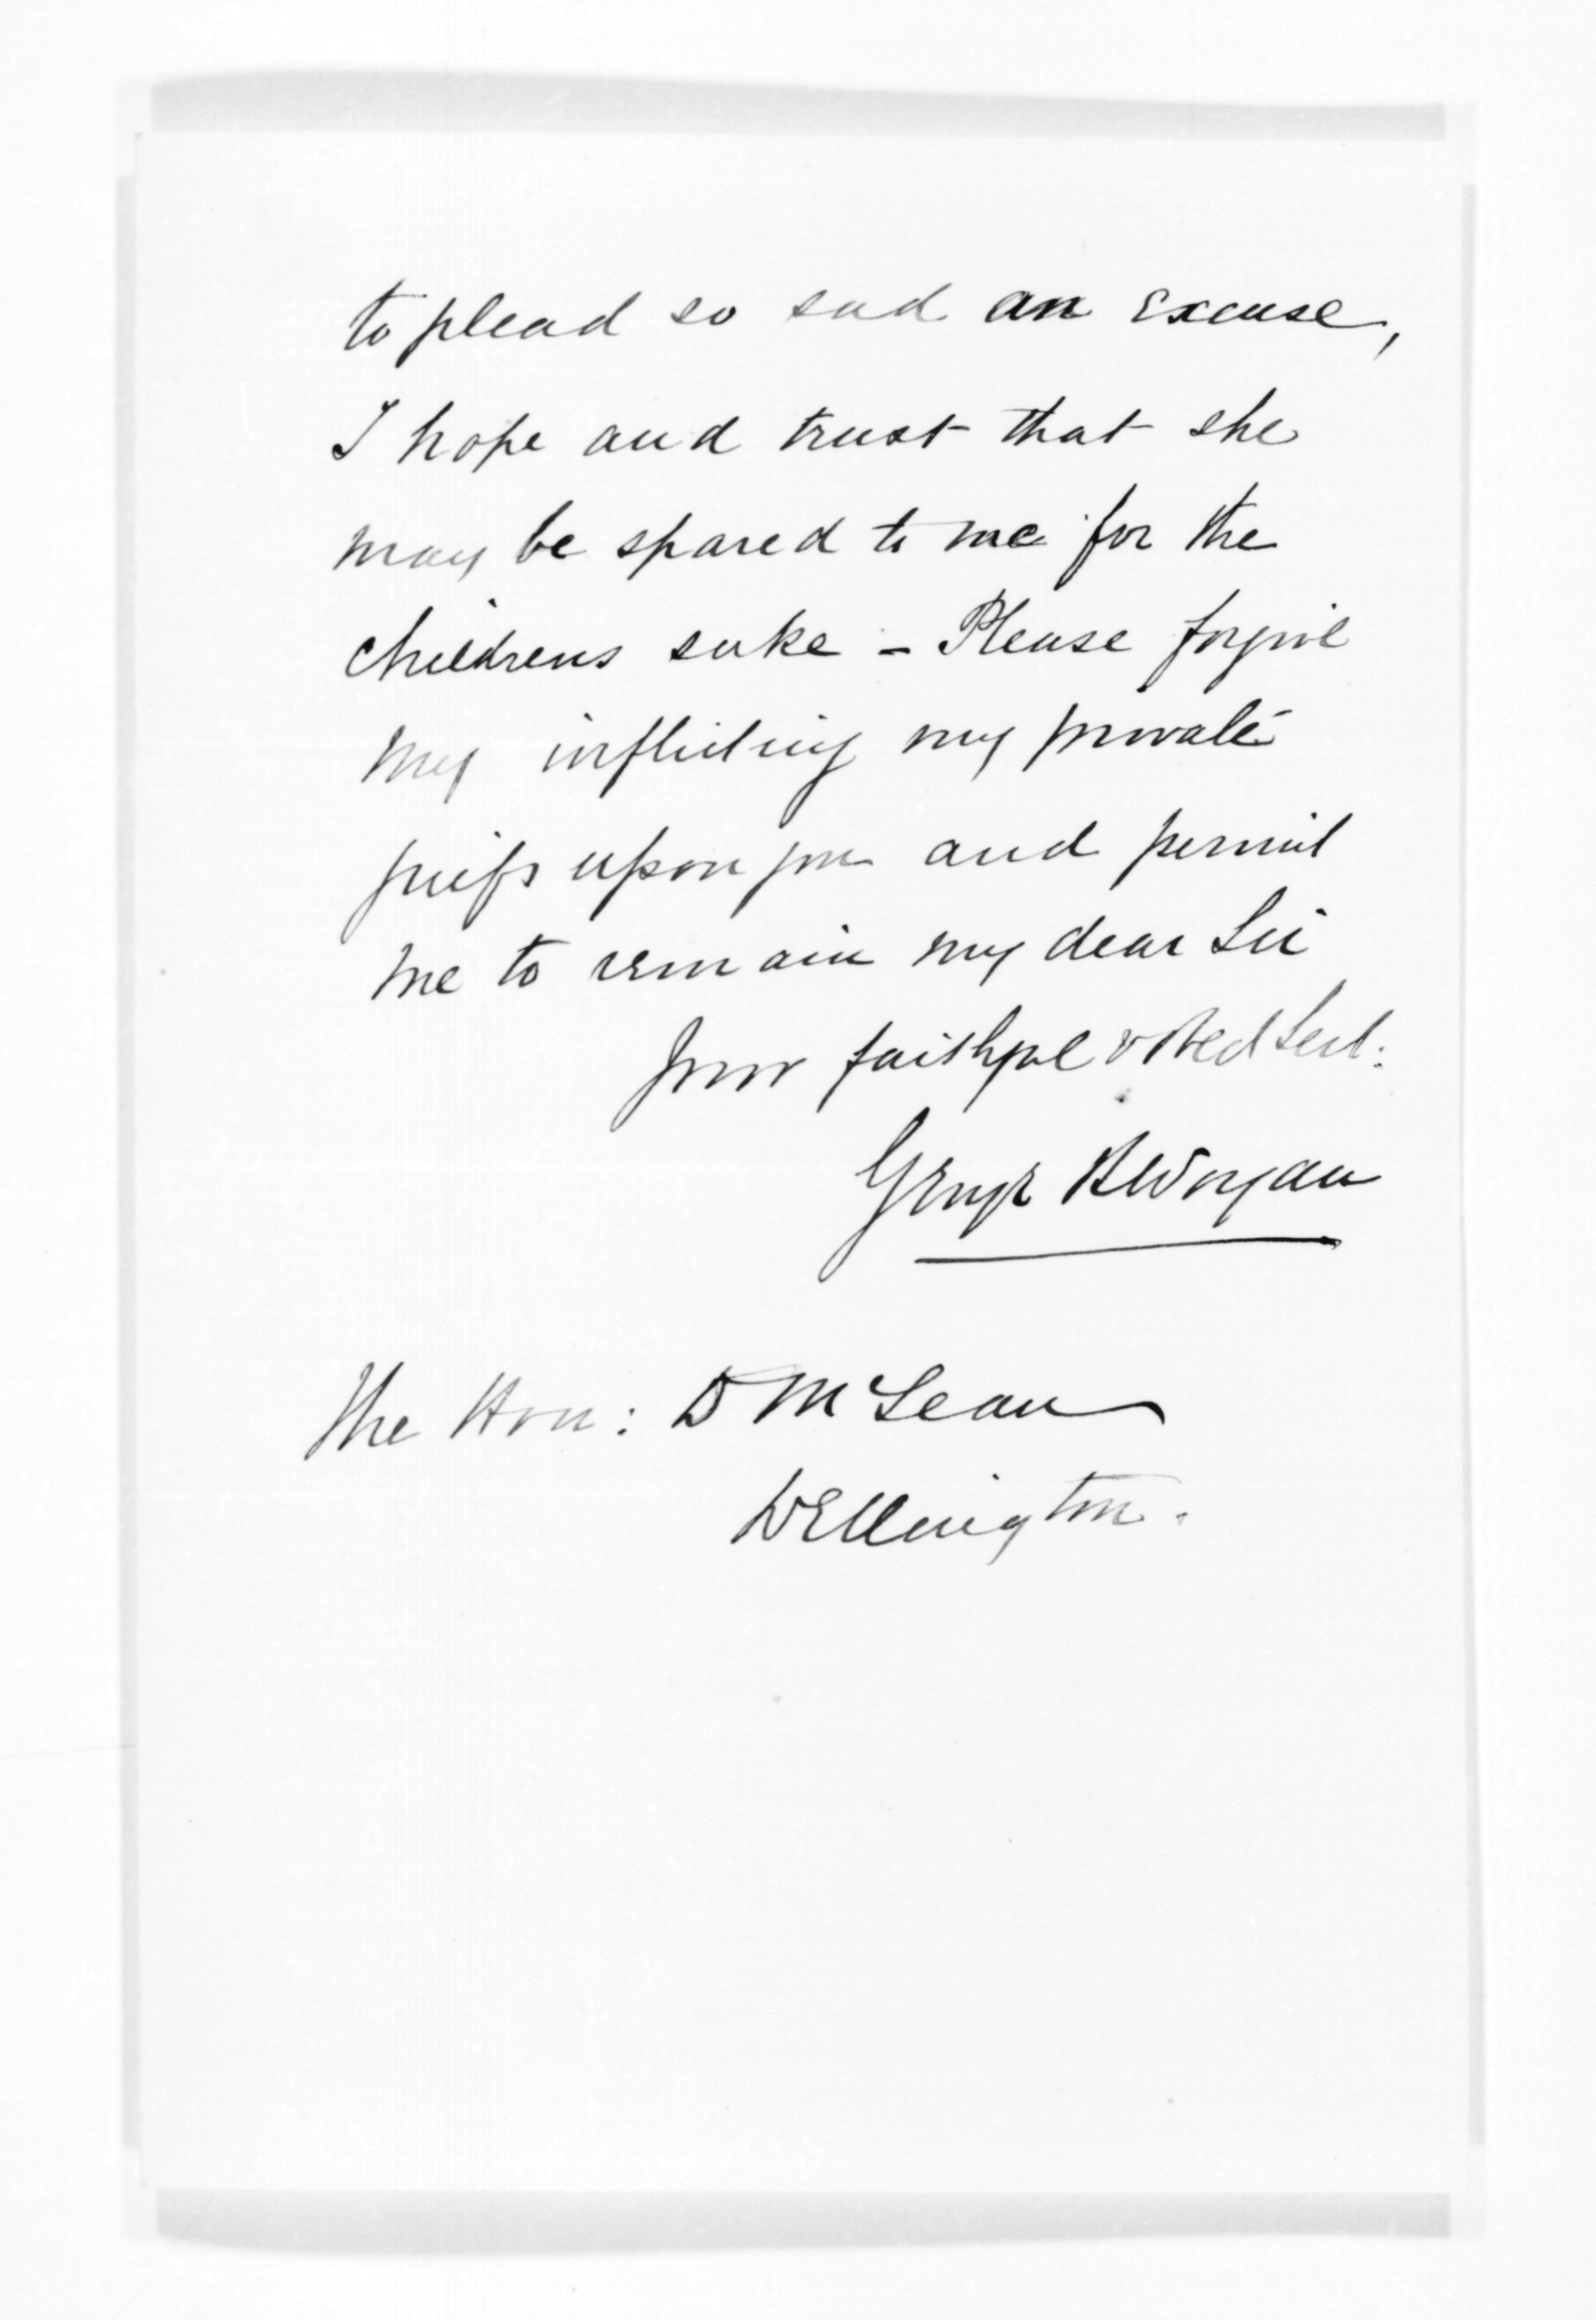 to plead so sad an excuse,
I hope and trust that she
may be spared to me for the
childrens sake - Please forgive
my inflicting my private
griefs upon you and permit
me to remain my dear Sir
Your faithful & obed Sert:
George B Worgan
The Hon: D McLean
Wellington.